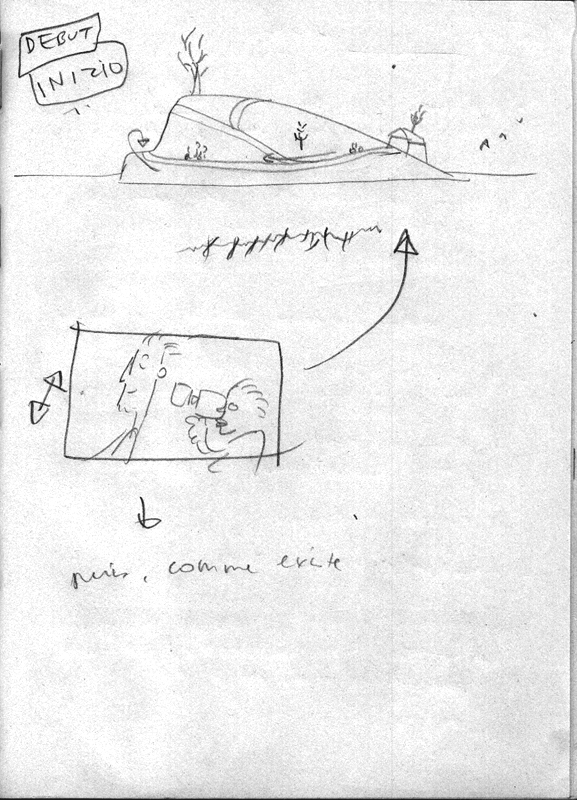 DEBUT
INIZIO
puis, comme existe